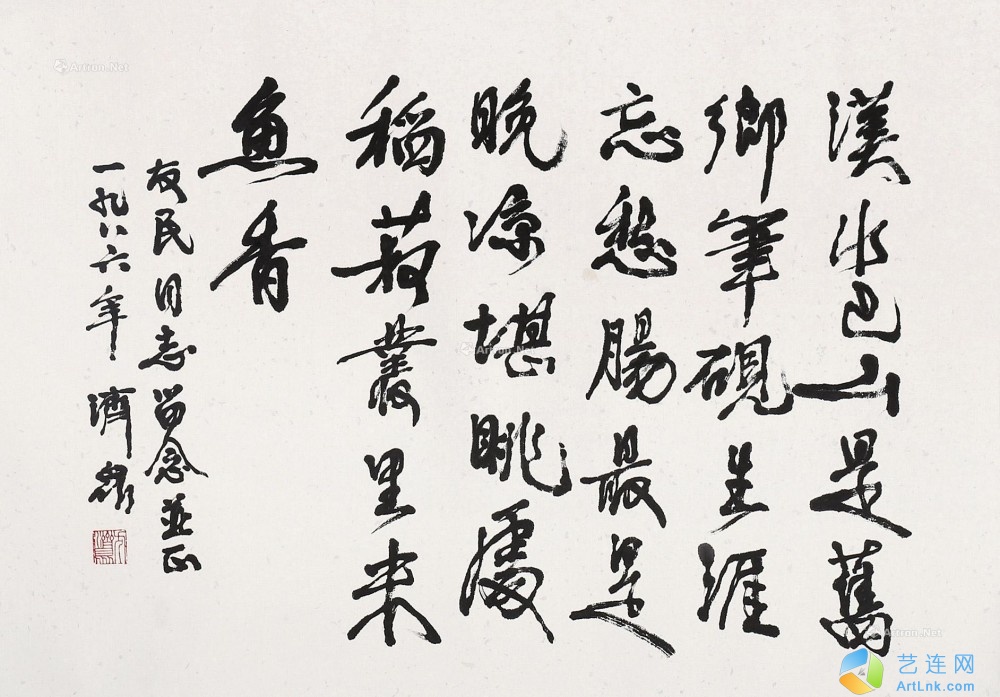 漢水巴山是舊
鄉筆硯生涯
忘愁腸最是
晚凉堪眺處
稻菽叢里来
魚香
友民同志留念並正
一九八六年 濟眾
Artron.Net
Artron.Net
Artron.Net
艺连网
ArtLnk.com